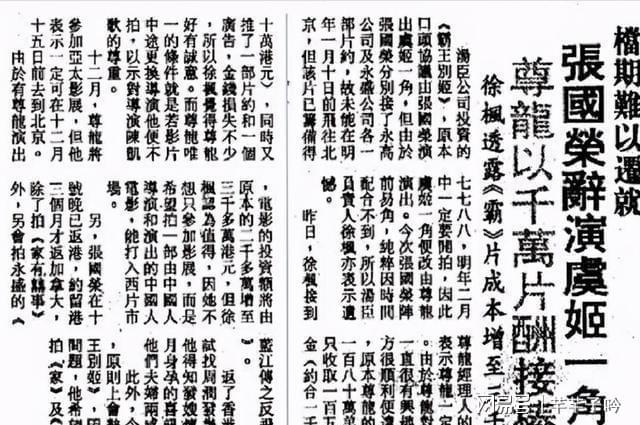 檔期難以遷就
張國榮辭演虞姬一角
尊龍以千萬片酬接
徐楓透露《霸》片成本增至三
湯臣公司投資的
《霸王別姬》,原本
口頭協議由張國榮演
出虞姬一角,但由於
張國榮分別接了永高
公司及永盛公司各一
部片約,故未能在明
年一月十日前飛往北
京,但該片已籌備得
七七八八,明年二月
中一定要開拍,因此
虞姬一角便改由尊龍
演出。今次張國榮陣
前易角,純粹因時間
配合不到,所以湯臣
負責人徐楓亦表示遺
憾。
昨日,徐楓接到
尊龍經理人的
表示尊龍一定
。由於尊龍對
一直很有興
方很順利便
,原本尊龍的
一百八十萬
只收取一百
金(約合一千
十萬港元),同時又
推了一部片約和一個
廣告,金錢損失不少
,所以徐楓覺得尊龍
好有誠意。而尊龍唯
一的條件就是若影片
中途更換導演他便不
拍,以示對導演陳凱
歌的尊重。
十二月,尊龍將
參加亞太影展,但他
表示一定可在十二月
十五日前去到北京。
由於有尊龍演出
,電影的投資額將由
原本的二千多萬增至
三千多萬港元,但徐
楓認為值得,因她不
想只參加影展,而是
希望拍一部由中國人
導演和演出的中國人
電影,能打入西片市
場。
另,張國榮在十
號晚已返港,約留港
三個月才返加拿大,
除了拍《家有囍事》
外,另會拍永盛的《
藍江傳之反飛
》。
返了香港
試找周潤發
他得知發嫂
月身孕的喜
此外,
他們夫婦兩
,原則上會
王別姬》,因
問題,他希望
拍《家》及《